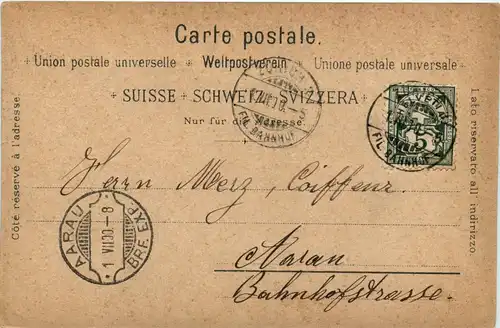 Carte postale.
Union postale universelle + Weltpostverein + Unione postale universale
+ SUISSE + SCHWEIZ + SVIZZERA +
Nur für die Adresse.
Côté réservé à l'adresse.
Lato riservato all indirizzo.
FIL. BAHNHOF
FIL. BAHNHOF
5
AARAU
1 VII 00 - 8
BRF. EXP.
Herrn Merz, Coiffeur.
Aarau
Bahnhofstrasse.